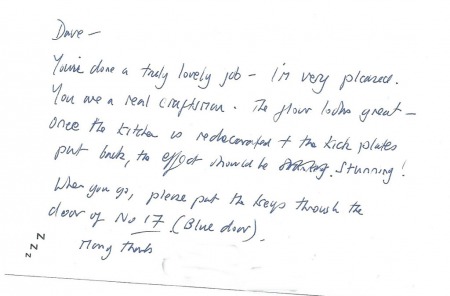 Dave –
You've done a truly lovely job – I'm very pleased.
You are a real craftsman. The floor looks great –
once the kitchen is redecorated + the kick plates
put back, the effect should be stunning!
When you go, please put the keys through the
door of No 17 (Blue door).
Many thanks
zzz